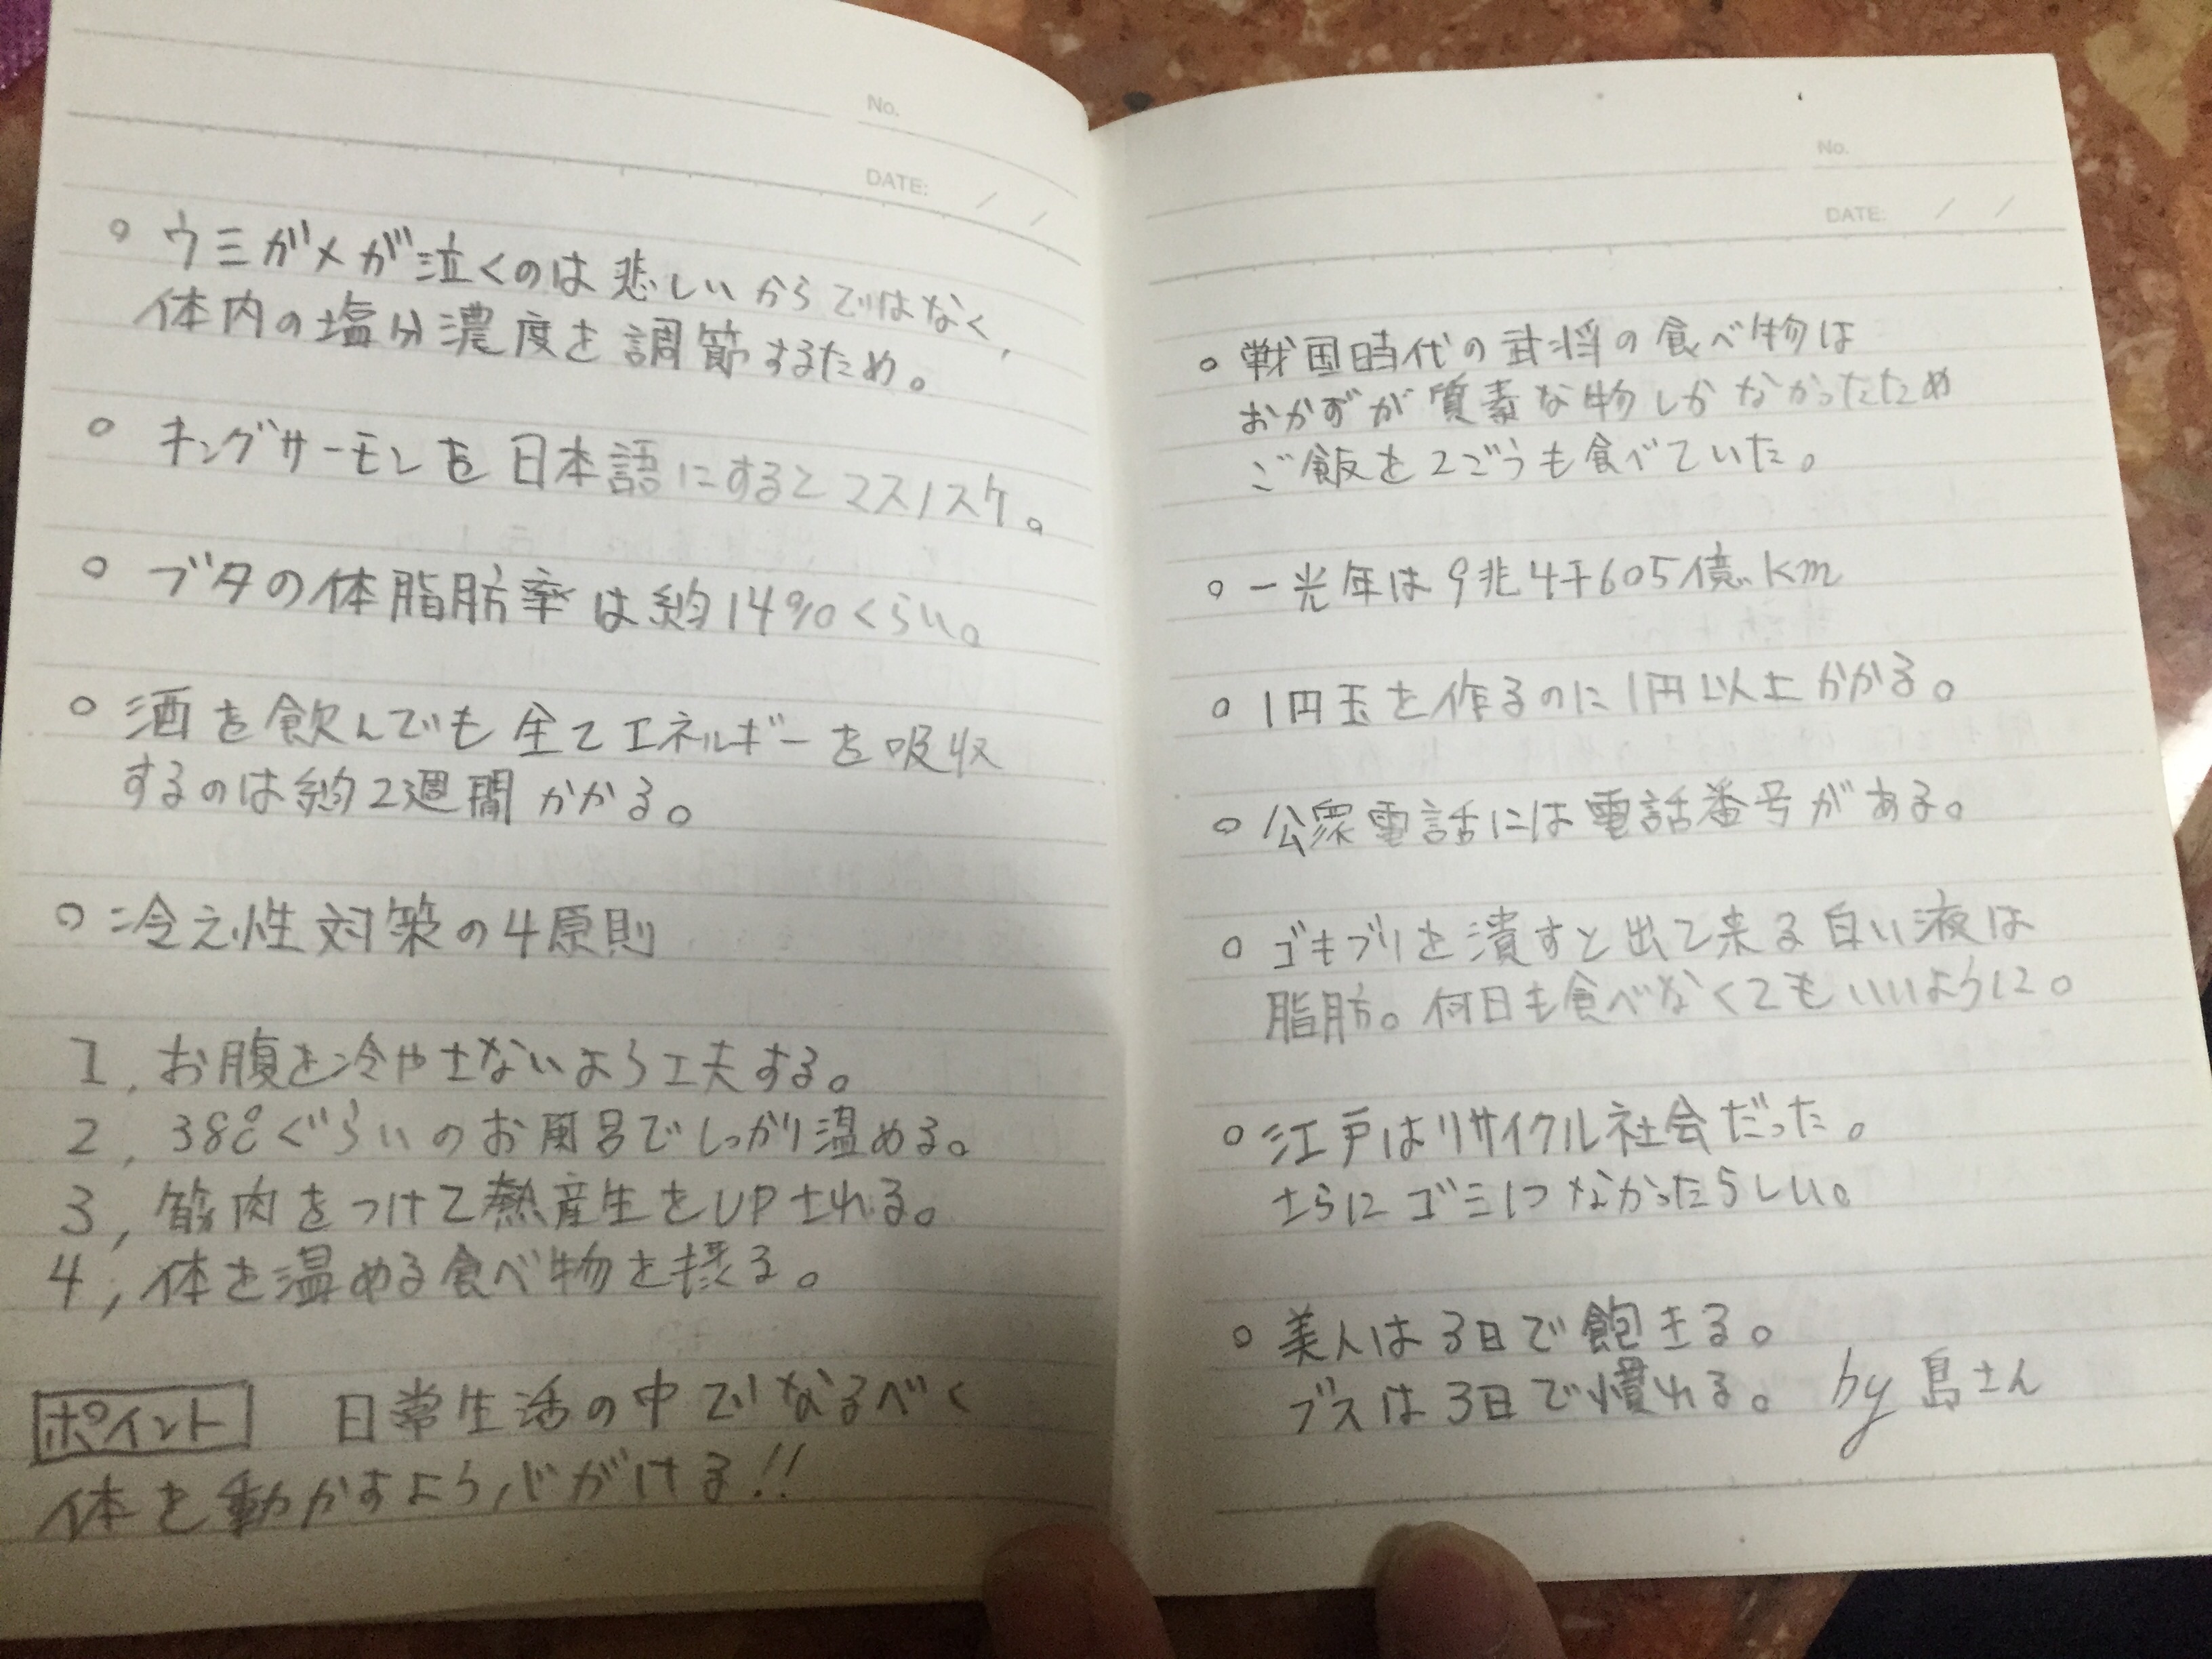 No.
DATE: / /
○ ウミガメが泣くのは悲しいからではなく,
体内の塩分濃度を調節するため。
○ キングサーモンを日本語にするとマスノスケ。
○ ブタの体脂肪率は約14%くらい。
○ 酒を飲んでも全てエネルギーを吸収
するのは約2週間かかる。
○ 冷え性対策の4原則
1, お腹を冷やさないよう工夫する。
2, 38℃ぐらいのお風呂でしっかり温める。
3, 筋肉をつけて熱産生をUPされる。
4, 体を温める食べ物を摂る。
ポイント 日常生活の中でなるべく
体を動かすよう心がける!!
No.
DATE: / /
○ 戦国時代の武将の食べ物は
おかずが質素な物しかなかったため
ご飯を2ごうも食べていた。
○ 一光年は9兆4千605億km
○ 1円玉を作るのに1円以上かかる。
○ 公衆電話には電話番号がある。
○ ゴキブリを潰すと出て来る白い液は
脂肪。何日も食べなくてもいいように。
○ 江戸はリサイクル社会だった。
さらにゴミ1つなかったらしい。
○ 美人は3日で飽きる。
ブスは3日で慣れる。 by 島さん